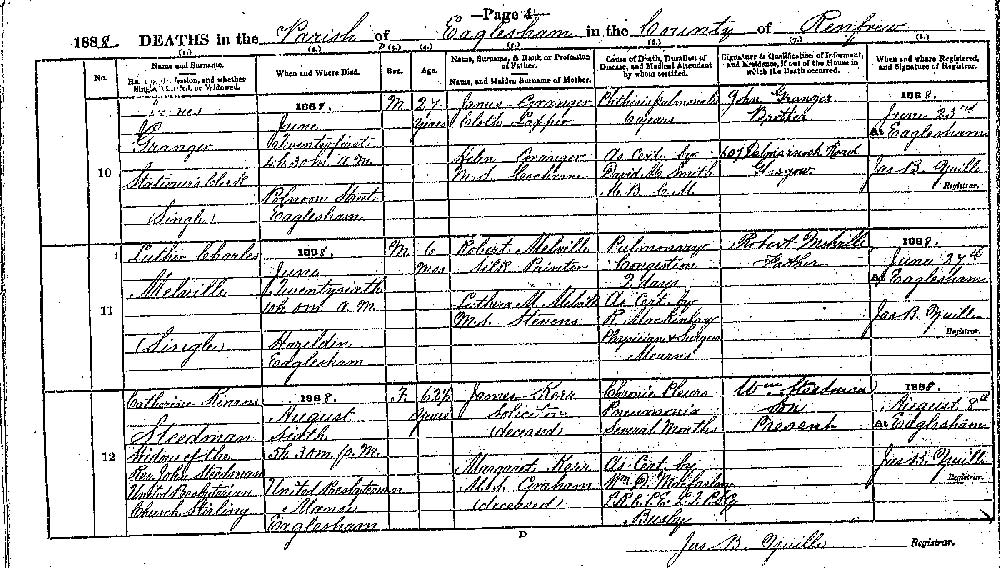 —Page 4—
1888 DEATHS in the Parish of Eaglesham in the County of Renfrew
(1.) (2.) (3.) (4.) (5.) (6.) (7.) (8.)
No.
Name and Surname.
Rank or Profession, and whether
Single, Married, or Widowed.
When and Where Died.
Sex.
Age.
Name, Surname, & Rank or Profession
of Father.
Name, and Maiden Surname of Mother.
Cause of Death, Duration of
Disease, and Medical Attendant
by whom certified.
Signature & Qualification of Informant,
and Residence, if out of the House in
which the Death occurred.
When and where Registered,
and Signature of Registrar.
10
Granger
Stationer's Clerk
(Single)
1888.
June
Twenty first
4h 30m A.M.
Polnoon Street
Eaglesham
M
27
Years
James Granger
Cloth Lapper
Helen Granger
M.S.
Phthisis Pulmonalis
As Cert. by
David Smith
M.B. C.M.
John Granger
Brother
607 Dalmarnock Road
Glasgow
1888.
June 23rd
At Eaglesham
Jas B. Yuille
Registrar.
11
Luther Charles
Melville
(Single)
1888.
June
Twenty sixth
10h 0m A.M.
Hazelden
Eaglesham
M
6
Mos
Robert Melville
Silk Printer
M. Melville
M.S. Stevens
Pulmonary
Congestion
2 days
As Cert. by
R. Mackinlay
Physician & Surgeon
Mearns
Robert Melville
Father
1888.
June 27th
At Eaglesham
Jas B. Yuille
Registrar.
12
Catherine
Steedman
Widow of the
Rev. John Steedman
United Presbyterian
Church Stirling
1888.
August
Sixth
5h 30m P.M.
United Presbyterian
Manse
Eaglesham
F
Years
James Kerr
Solicitor
(deceased)
Margaret Kerr
M.S. Graham
(deceased)
Chronic Pleuro
Pneumonia
Several Months
As Cert. by
Wm D. Macfarlan
Busby
Wm Steedman
Son
Present
1888.
August 8th
At Eaglesham
Jas B. Yuille
Registrar.
D
Jas B. Yuille Registrar.